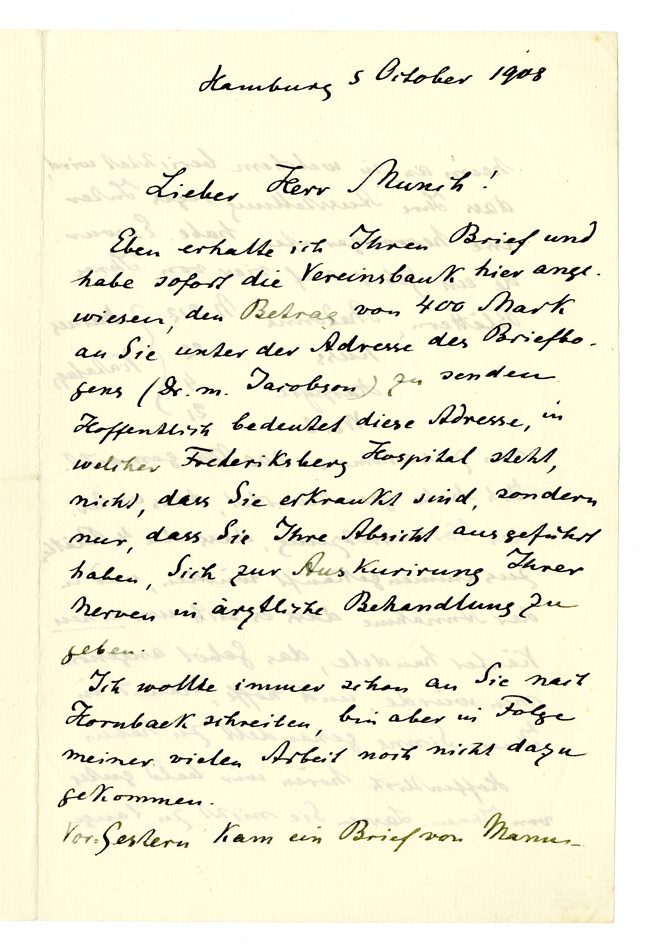 Hamburg 5 October 1908
Lieber Herr Munch!
Eben erhalte ich Ihren Brief und
habe sofort die Vereinsbank hier ange-
wiesen, den Betrag von 400 Mark
an Sie unter der Adresse des Briefbo-
gens (Dr. m. Jacobson) zu senden
Hoffentlich bedeutet diese Adresse, in
welcher Frederiksberg Hospital steht,
nicht, dass Sie erkrankt sind, sondern
nur, dass Sie Ihre Absicht ausgeführt
haben, Sich zur Auskurirung Ihrer
Nerven in ärztliche Behandlung zu
geben.
Ich wollte immer schon an Sie nach
Hornbaek schreiben, bin aber in Folge
meiner vielen Arbeit noch nicht dazu
gekommen.
Vor-Gestern kam ein Brief von